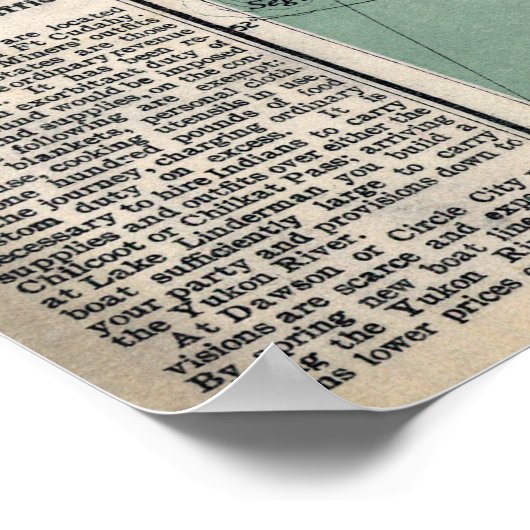 Seg
62°
are located
Ft Cudahy.
miners' outfits
tates are those
ordinary revenue
It has been re-
exorbitant duty of
nd would be imposed
d supplies on the con-
following are exempt:
blankets, personal cloth-
se, cooking utensils in use,
ne hundred pounds of food
he journey, charging ordinary
tom duty on excess. It is
cessary to hire Indians to carry
supplies and outfits over either the
Chilcoot or Chilkat Pass; arriving
at Lake Linderman you build a
boat sufficiently large to carry
your party and provisions down to
the Yukon River.
At Dawson or Circle City
visions are scarce and exp
By spring new boat lin
g the Yukon Ri
ns lower prices